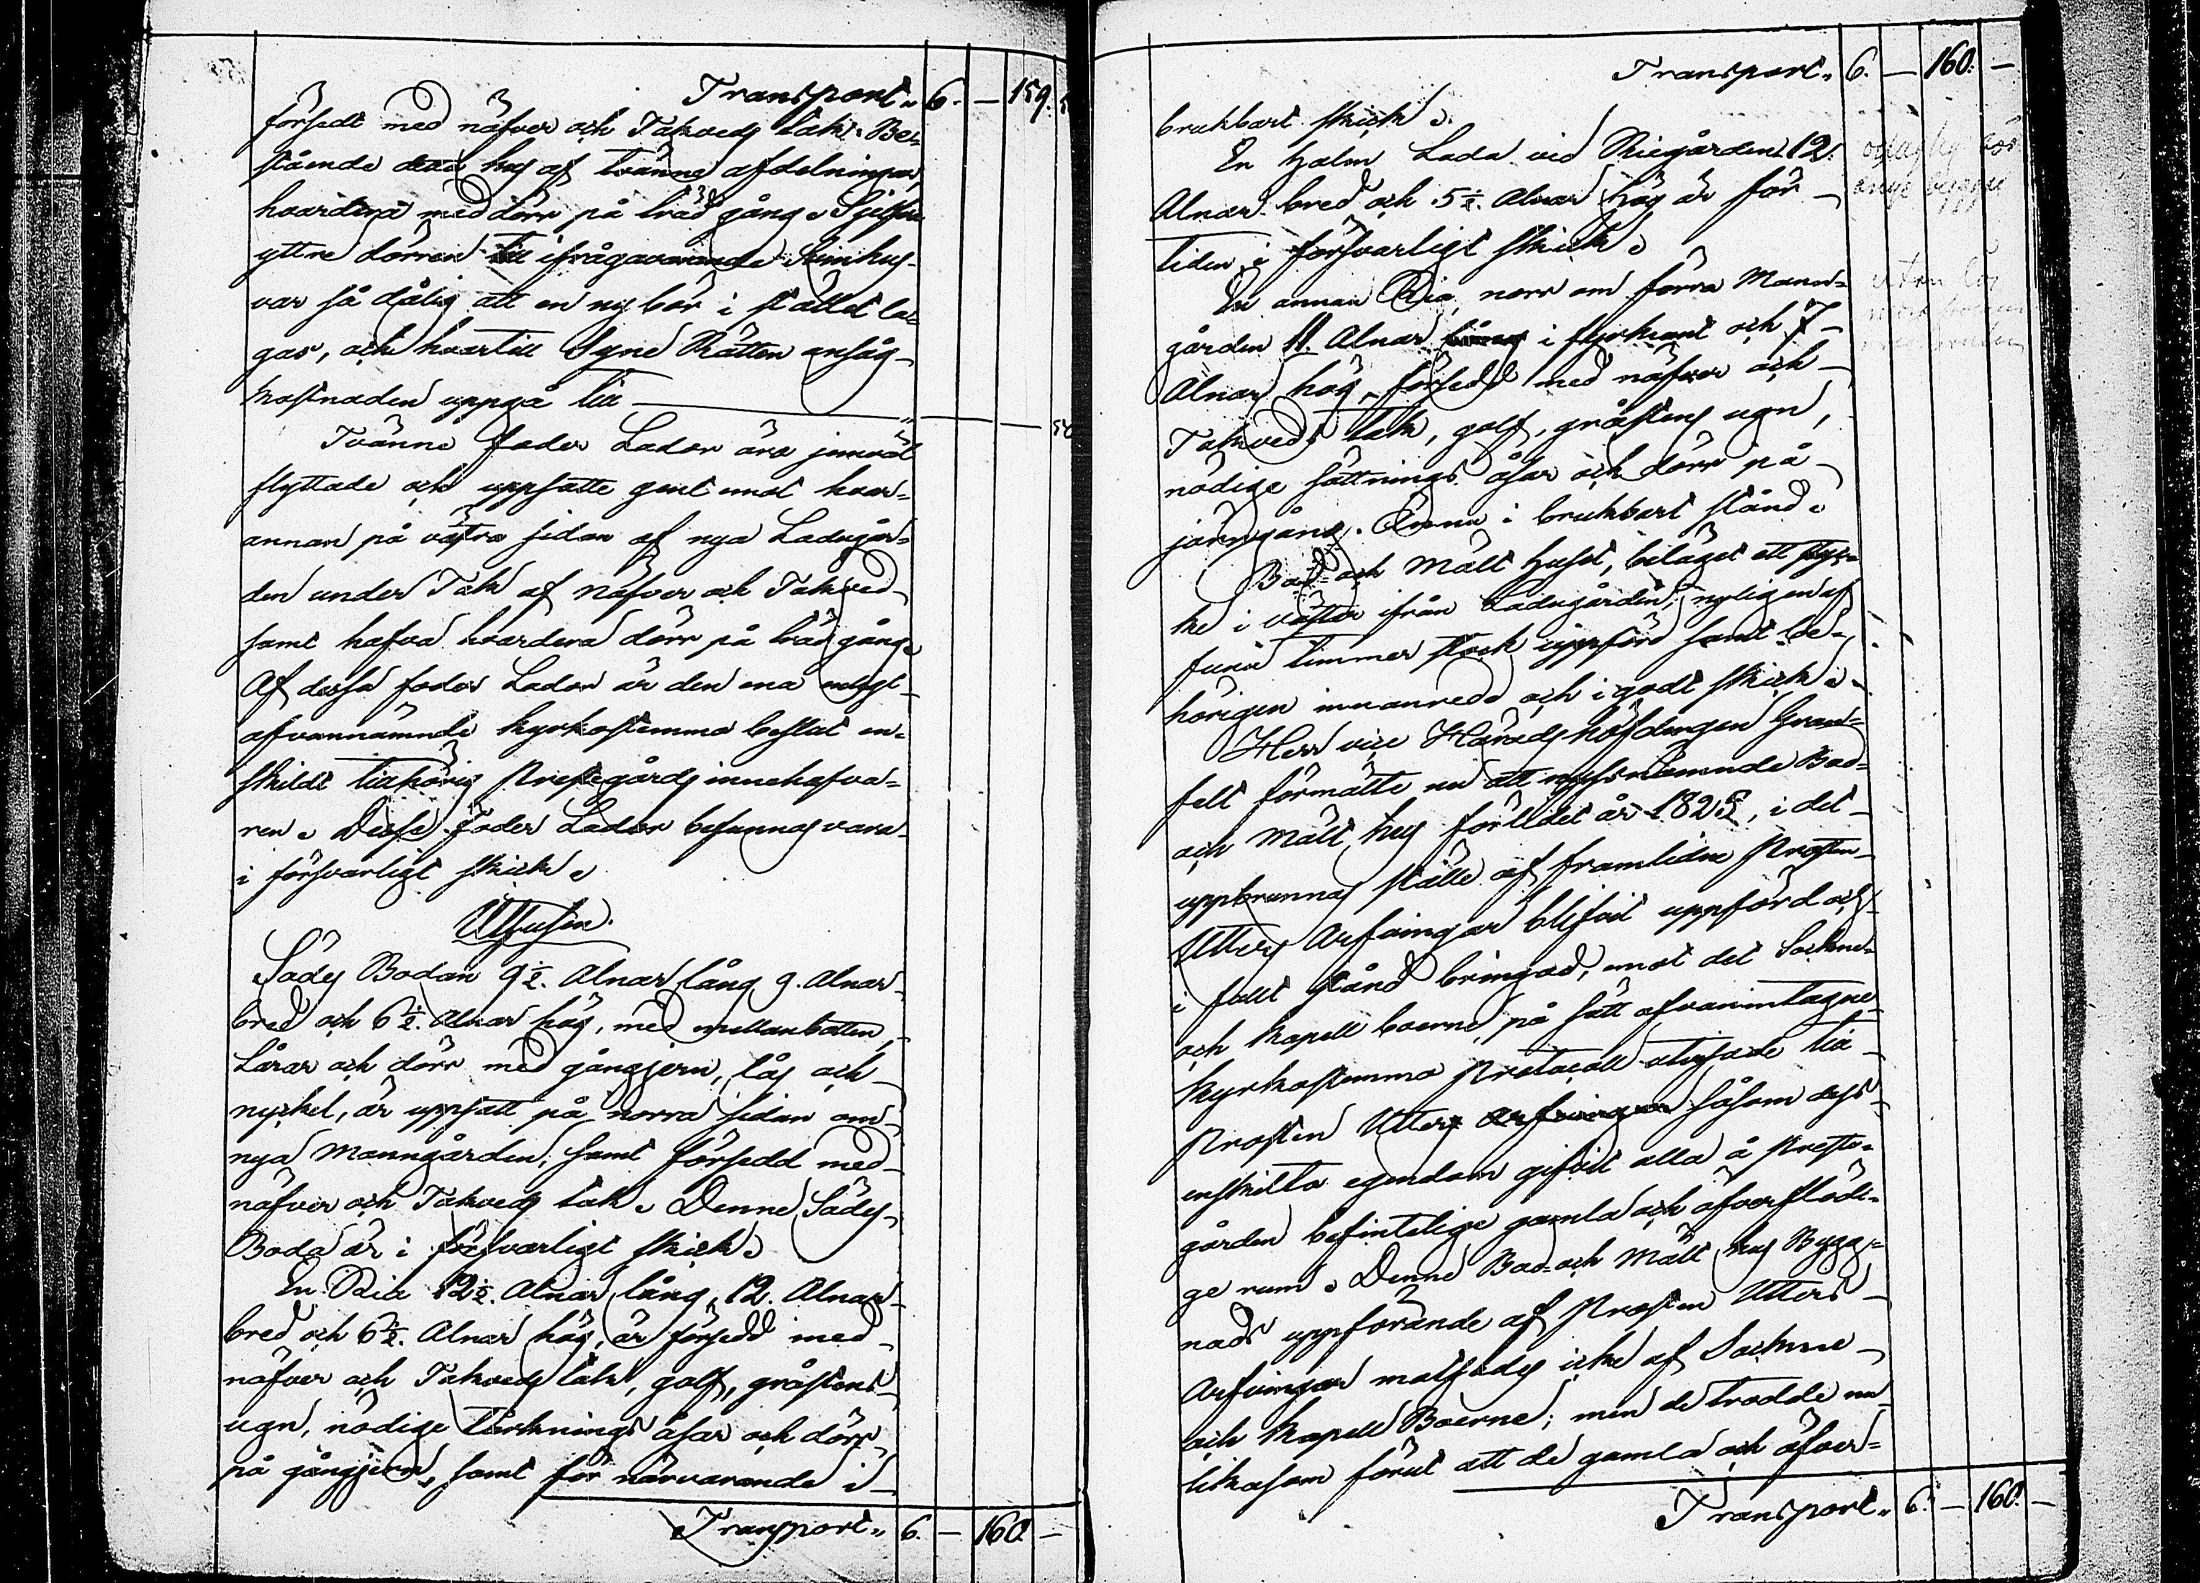 Transport. 6. — 159.
försedt med näfver och Takveds tak. Be-
stående hus af tvänne afdelningar,
hvardera med dörr på träd gång. Sjelfva
yttre dörren till ifrågavarande
var så dålig att en ny bör i stället la-
gas, och hvartill Syne Rätten ansåg
kostnaden uppgå till —
Tvänne foder Lador äro jemväl
flyttade och uppsatte gent emot hvar-
annan på västra sidan af nya Ladugår-
den under Tak af näfver och Takved
samt hafva hvardera dörr på träd gång.
Af dessa foder Lador är den ena enligt
afvannämnde kyrkostemma beslut en-
skildt tillhörig Prestegårds innehafva-
ren. Desse Foder Lador befunnos vara
i försvarligt skick.
Uthusen.
Sädes Bodan 9 1/2. Alnar lång 9. Alnar
bred och 6 1/2. Alnar hög, med mullanbotten,
Lårar och dörr med gångjern, lås och
nyckel, är uppsatt på norra sidan om
nya Manngården, samt försedd med
näfver och Takveds tak. Denne Sädes
Boda är i försvarligt skick.
En Ria 12 1/2. Alnar lång, 12. Alnar
bred och 6 1/2. Alnar hög, är försedd med
näfver och Takveds tak, golf, gråstens
ugn, nödige torknings åsar och dörr
på gångjern, samt för närvarande i
Transport. 6. — 160. —
Transport. 6. — 160. —
brukbart skick.
En Halm Lada vid Riegården 12.
Alnar bred och 5 1/2. Alnar hög är för
tiden i försvarligt skick.
En annan Ria norr om förra Mann-
gården 11. Alnar i fyrkant och 7
Alnar hög, försedd med näfver och
Takveds tak, golf, gråstens ugn,
nödige sättnings åsar och dörr på
jerngång. Ännu i brukbart stånd.
Bad- och Mält Huset, beläget ett styc-
ke i väster ifrån Ladugården, nyligen af
furu timmer stock uppförd samt be-
hörigen innanredd och i godt skick.
Herr vice Häradshöfdingen Gran-
felt förmälte nu att nyssnämnde Bad-
och Mält hus förlidet år 1825, i det
uppbrunnas ställe af framlidne Prosten
Utters Arfvingar blifvit uppförd och
i fullt stånd bringad, emot det Sockne-
och Kapell boerne på sätt afvanintagne
kyrkostemma Protocoll utvisade till
Prosten Utters arfvingar såsom dess
enskilta egendom gifvit alla å Preste-
gården befintelige gamla och öfverflödi-
ge rum. Denne Bad- och Mält hus Bygg-
nads uppförande af Prosten Utters
Arfvingar motsades icke af Sockne
och Kapell Boerne; men de trodde nu
likasom förut att de gamla och öfver-
Transport. 6. — 160. —